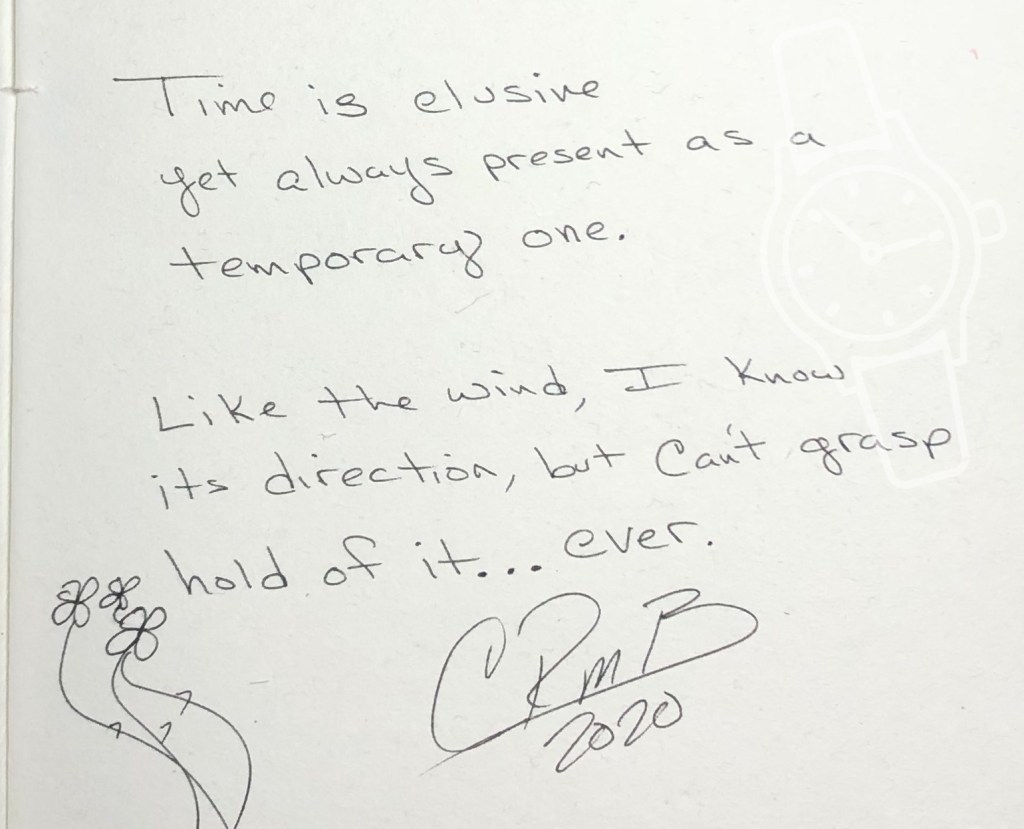 Time is elusive
yet always present as a
temporary one.
Like the wind, I know
its direction, but Can't grasp
hold of it... ever.
CRmB
2020